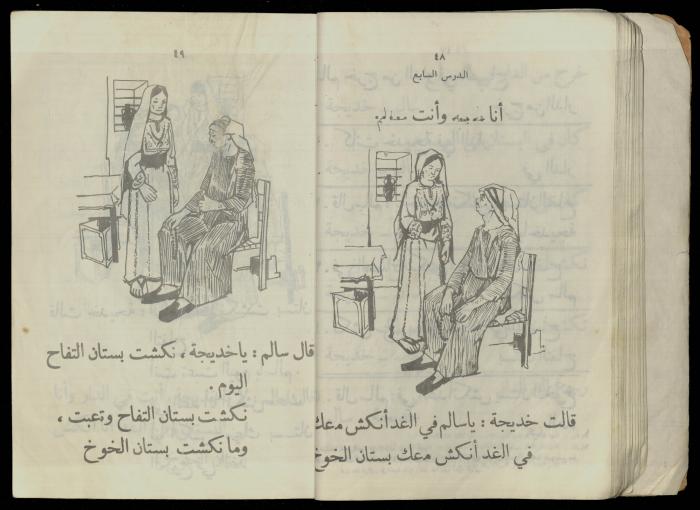 ٤٨
الدرس السابع
أنا وأنت
قالت خديجة : ياسالم في الغد أنكش معك
في الغد أنكش معك بستان الخوخ
٤٩
قال سالم : ياخديجة ، نكشت بستان التفاح
اليوم .
نكشت بستان التفاح وتعبت ،
وما نكشت بستان الخوخ